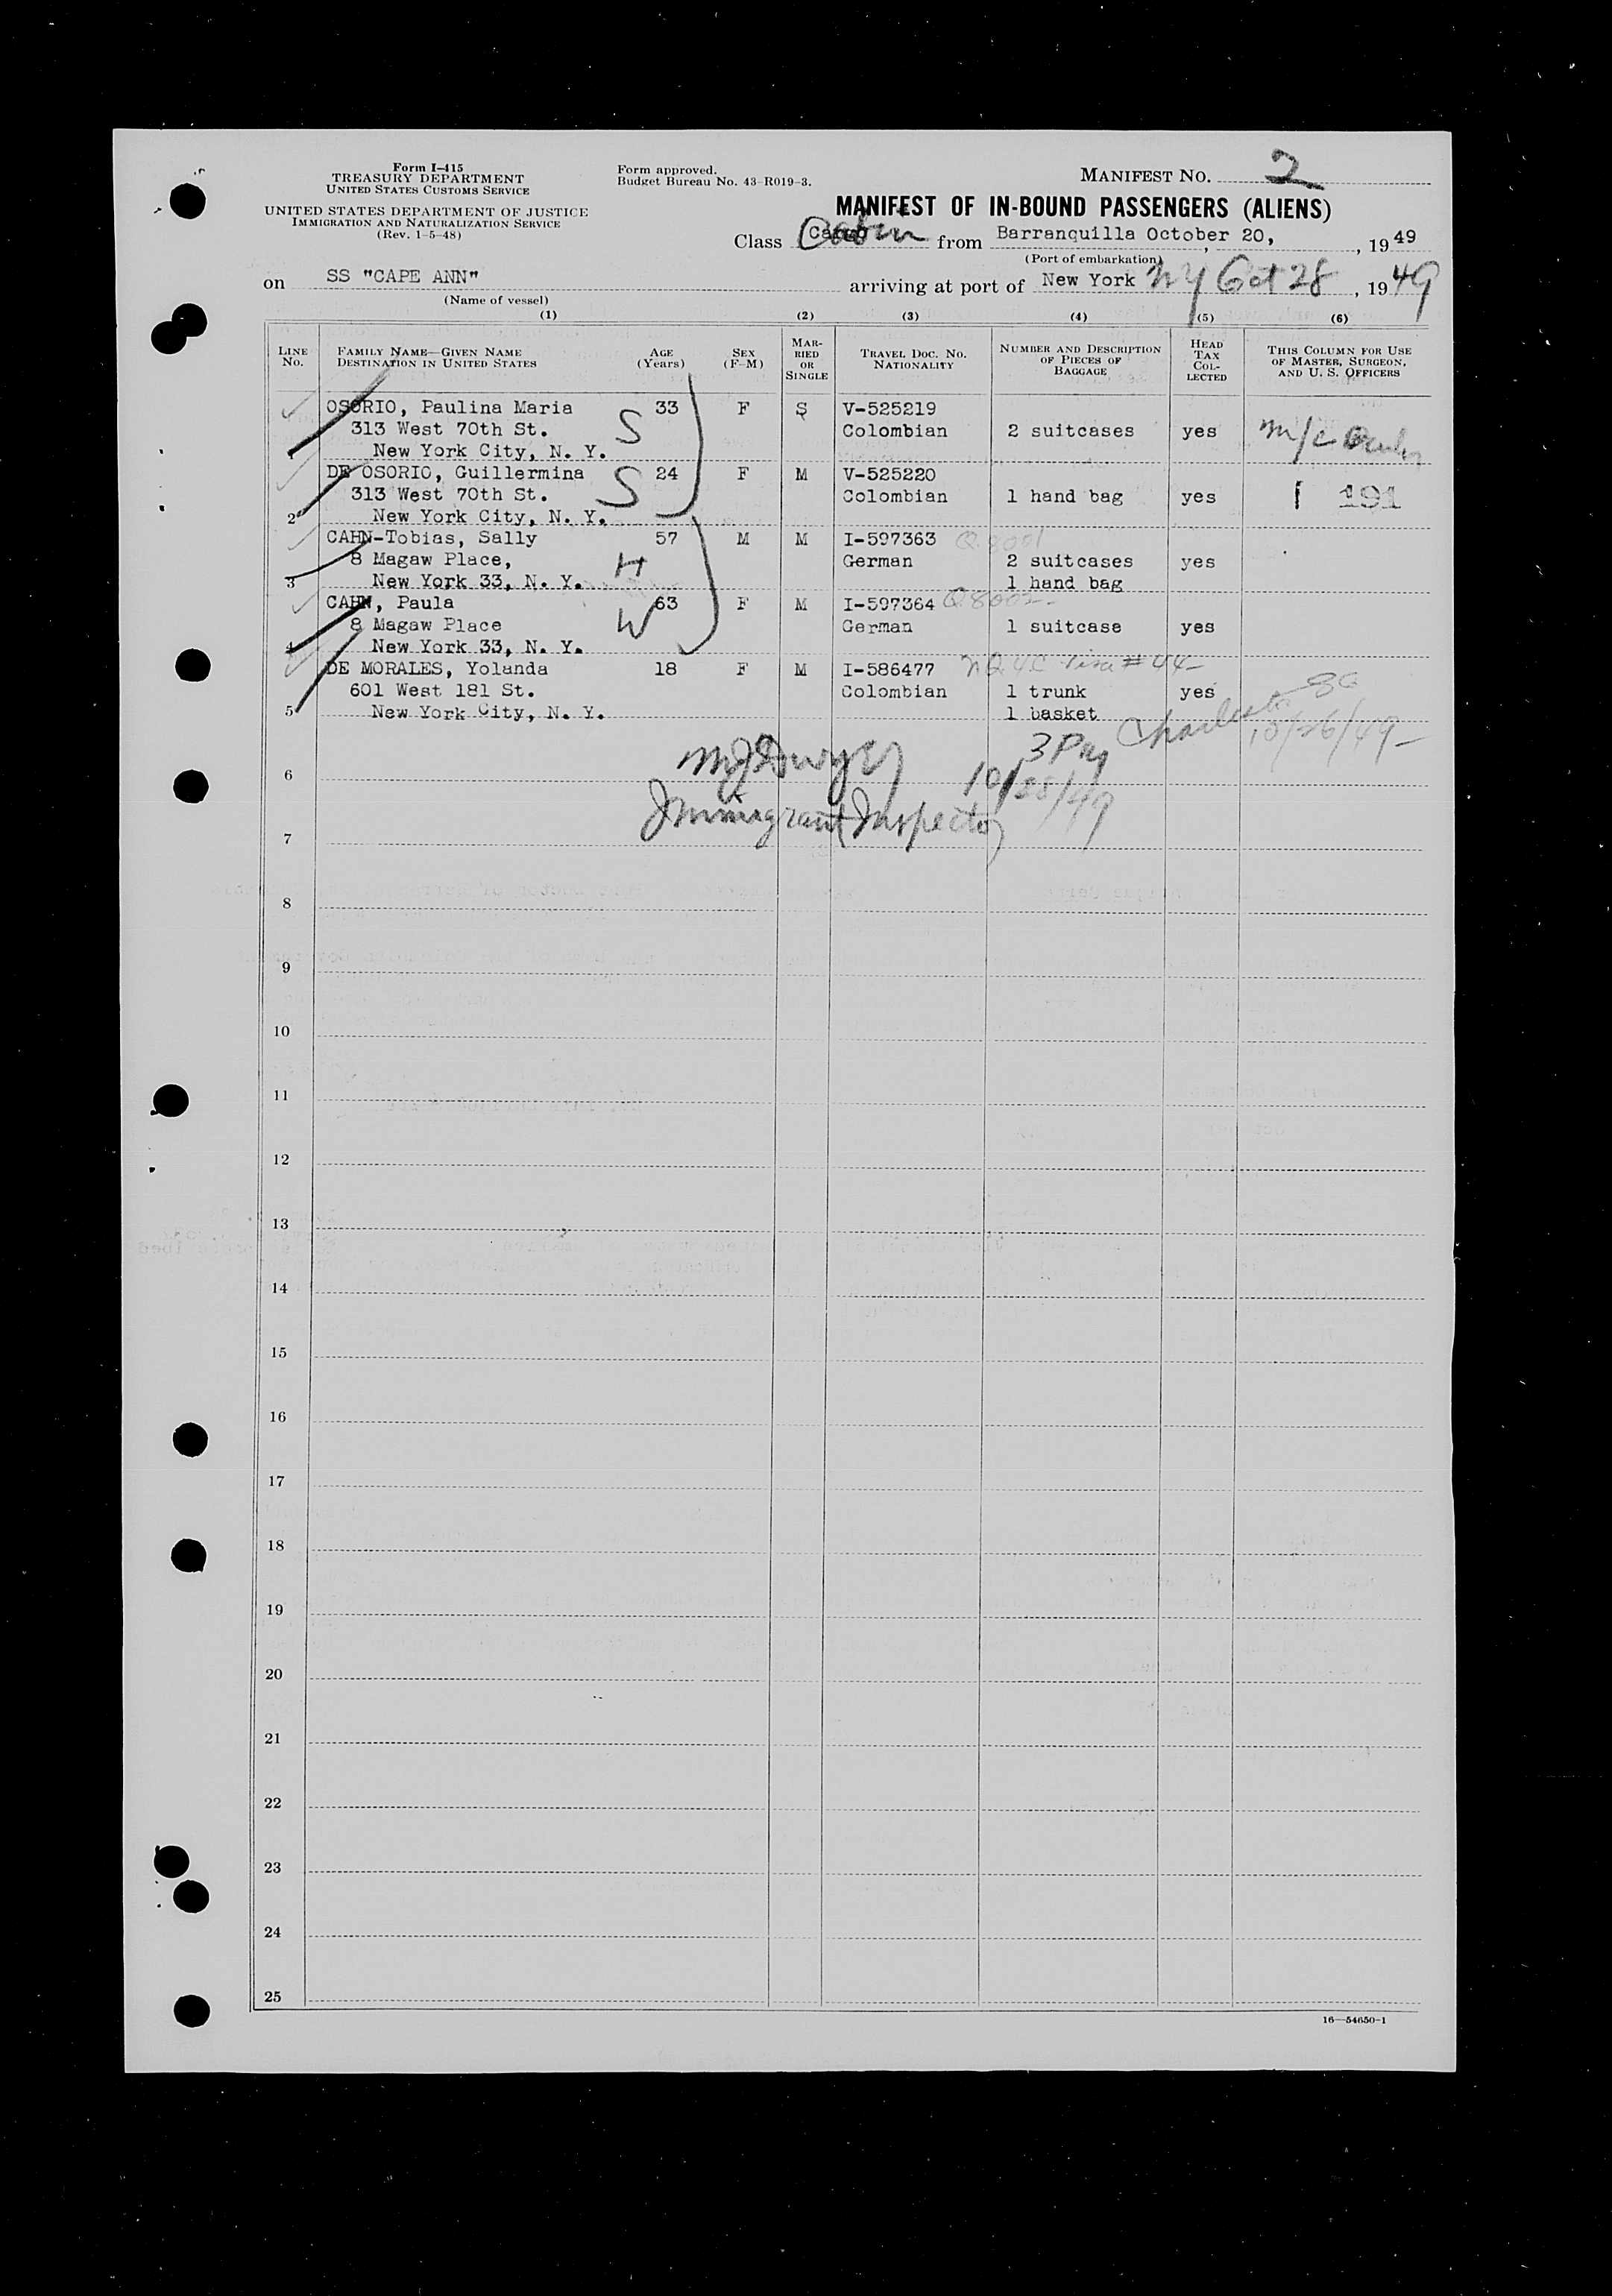 Form I-415
TREASURY DEPARTMENT
UNITED STATES CUSTOMS SERVICE
UNITED STATES DEPARTMENT OF JUSTICE
IMMIGRATION AND NATURALIZATION SERVICE
(Rev. 1-5-48)
Form approved.
Budget Bureau No. 43-R019-3.
MANIFEST NO. 2
MANIFEST OF IN-BOUND PASSENGERS (ALIENS)
Class Cabin from Barranquilla October 20, , 1949
(Port of embarkation)
on SS "CAPE ANN" arriving at port of New York NY Oct 28, 1949
(Name of vessel)
(1) (2) (3) (4) (5) (6)
LINE No. FAMILY NAME—GIVEN NAME DESTINATION IN UNITED STATES AGE (Years) SEX (F-M) MARRIED OR SINGLE TRAVEL DOC. NO. NATIONALITY NUMBER AND DESCRIPTION OF PIECES OF BAGGAGE HEAD TAX COLLECTED THIS COLUMN FOR USE OF MASTER, SURGEON, AND U. S. OFFICERS
OSORIO, Paulina Maria 33 F S V-525219
313 West 70th St. S Colombian 2 suitcases yes m/c
1 New York City, N. Y.
DE OSORIO, Guillermina 24 F M V-525220
313 West 70th St. S Colombian 1 hand bag yes 1 191
2 New York City, N. Y.
CAHN-Tobias, Sally 57 M M I-597363 Q8001
8 Magaw Place, H German 2 suitcases yes
3 New York 33, N. Y. 1 hand bag
CAHN, Paula 63 F M I-597364 Q8002
8 Magaw Place W German 1 suitcase yes
4 New York 33, N. Y.
DE MORALES, Yolanda 18 F M I-586477 NQ4C visa #44
601 West 181 St. Colombian 1 trunk yes
5 New York City, N. Y. 1 basket
Charleston SC
10/26/49
MJ Dwyer 3
6 10/28/49
Immigrant Inspector
7
8
9
10
11
12
13
14
15
16
17
18
19
20
21
22
23
24
25
16—54650-1